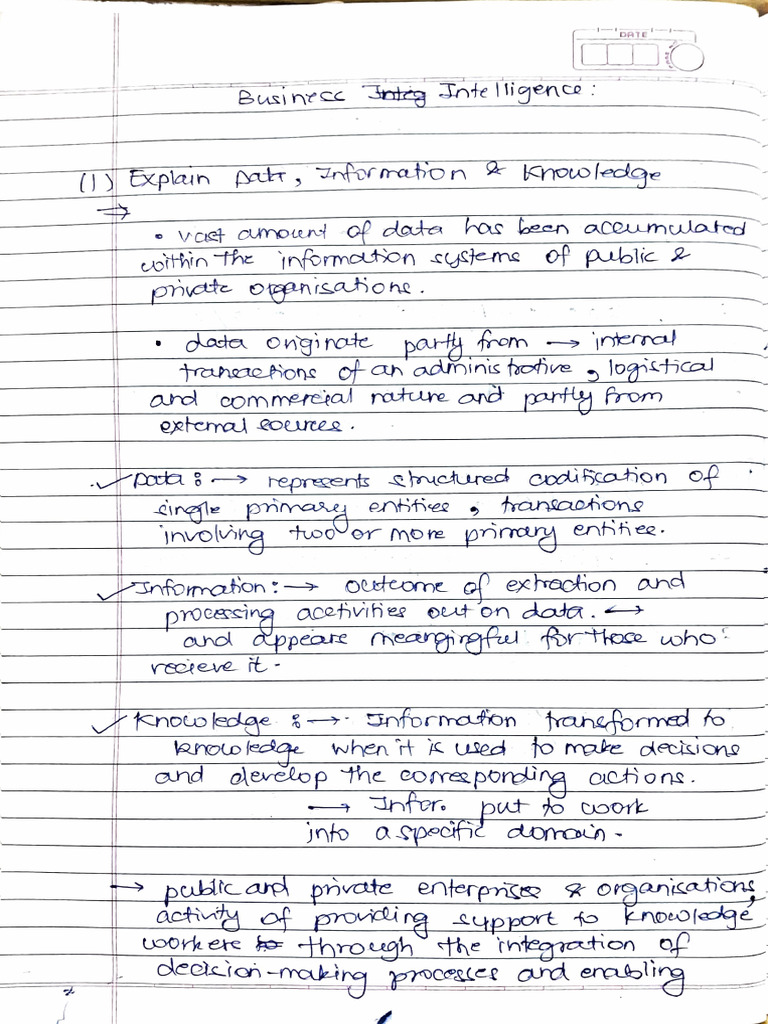 DATE
Business Integ Intelligence:
(1) Explain Data, Information & Knowledge
⇒
• vast amount of data has been accumulated
within the information systems of public &
private organisations.
• data originate partly from → internal
transactions of an administrative, logistical
and commercial nature and partly from
external sources.
✓ Data: → represents structured codification of
single primary entities, transactions
involving two or more primary entities.
✓ Information: → outcome of extraction and
processing acetivities out on data. ↔
and appears meangingful for those who
recieve it.
✓ Knowledge: → Information transformed to
knowledge when it is used to make decisions
and develop the corresponding actions.
→ Infor. put to work
into a specific domain.
→ public and private enterprises & organisations,
activity of providing support to knowledge
workers to through the integration of
decision-making processes and enabling